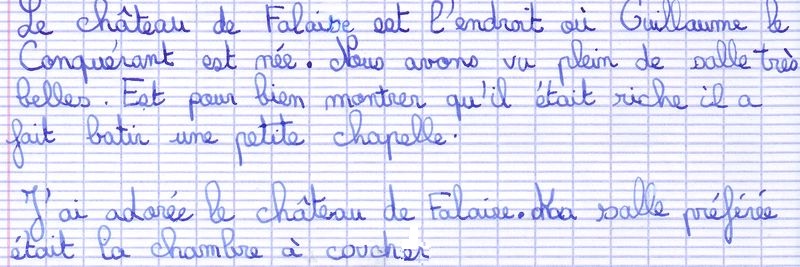 Le château de Falaise est l'endroit où Guillaume le
Conquérant est née. Nous avons vu plein de salle très
belles. Est pour bien montrer qu'il était riche il a
fait batir une petite chapelle.
J'ai adorée le château de Falaise. Ma salle préférée
était la chambre à coucher